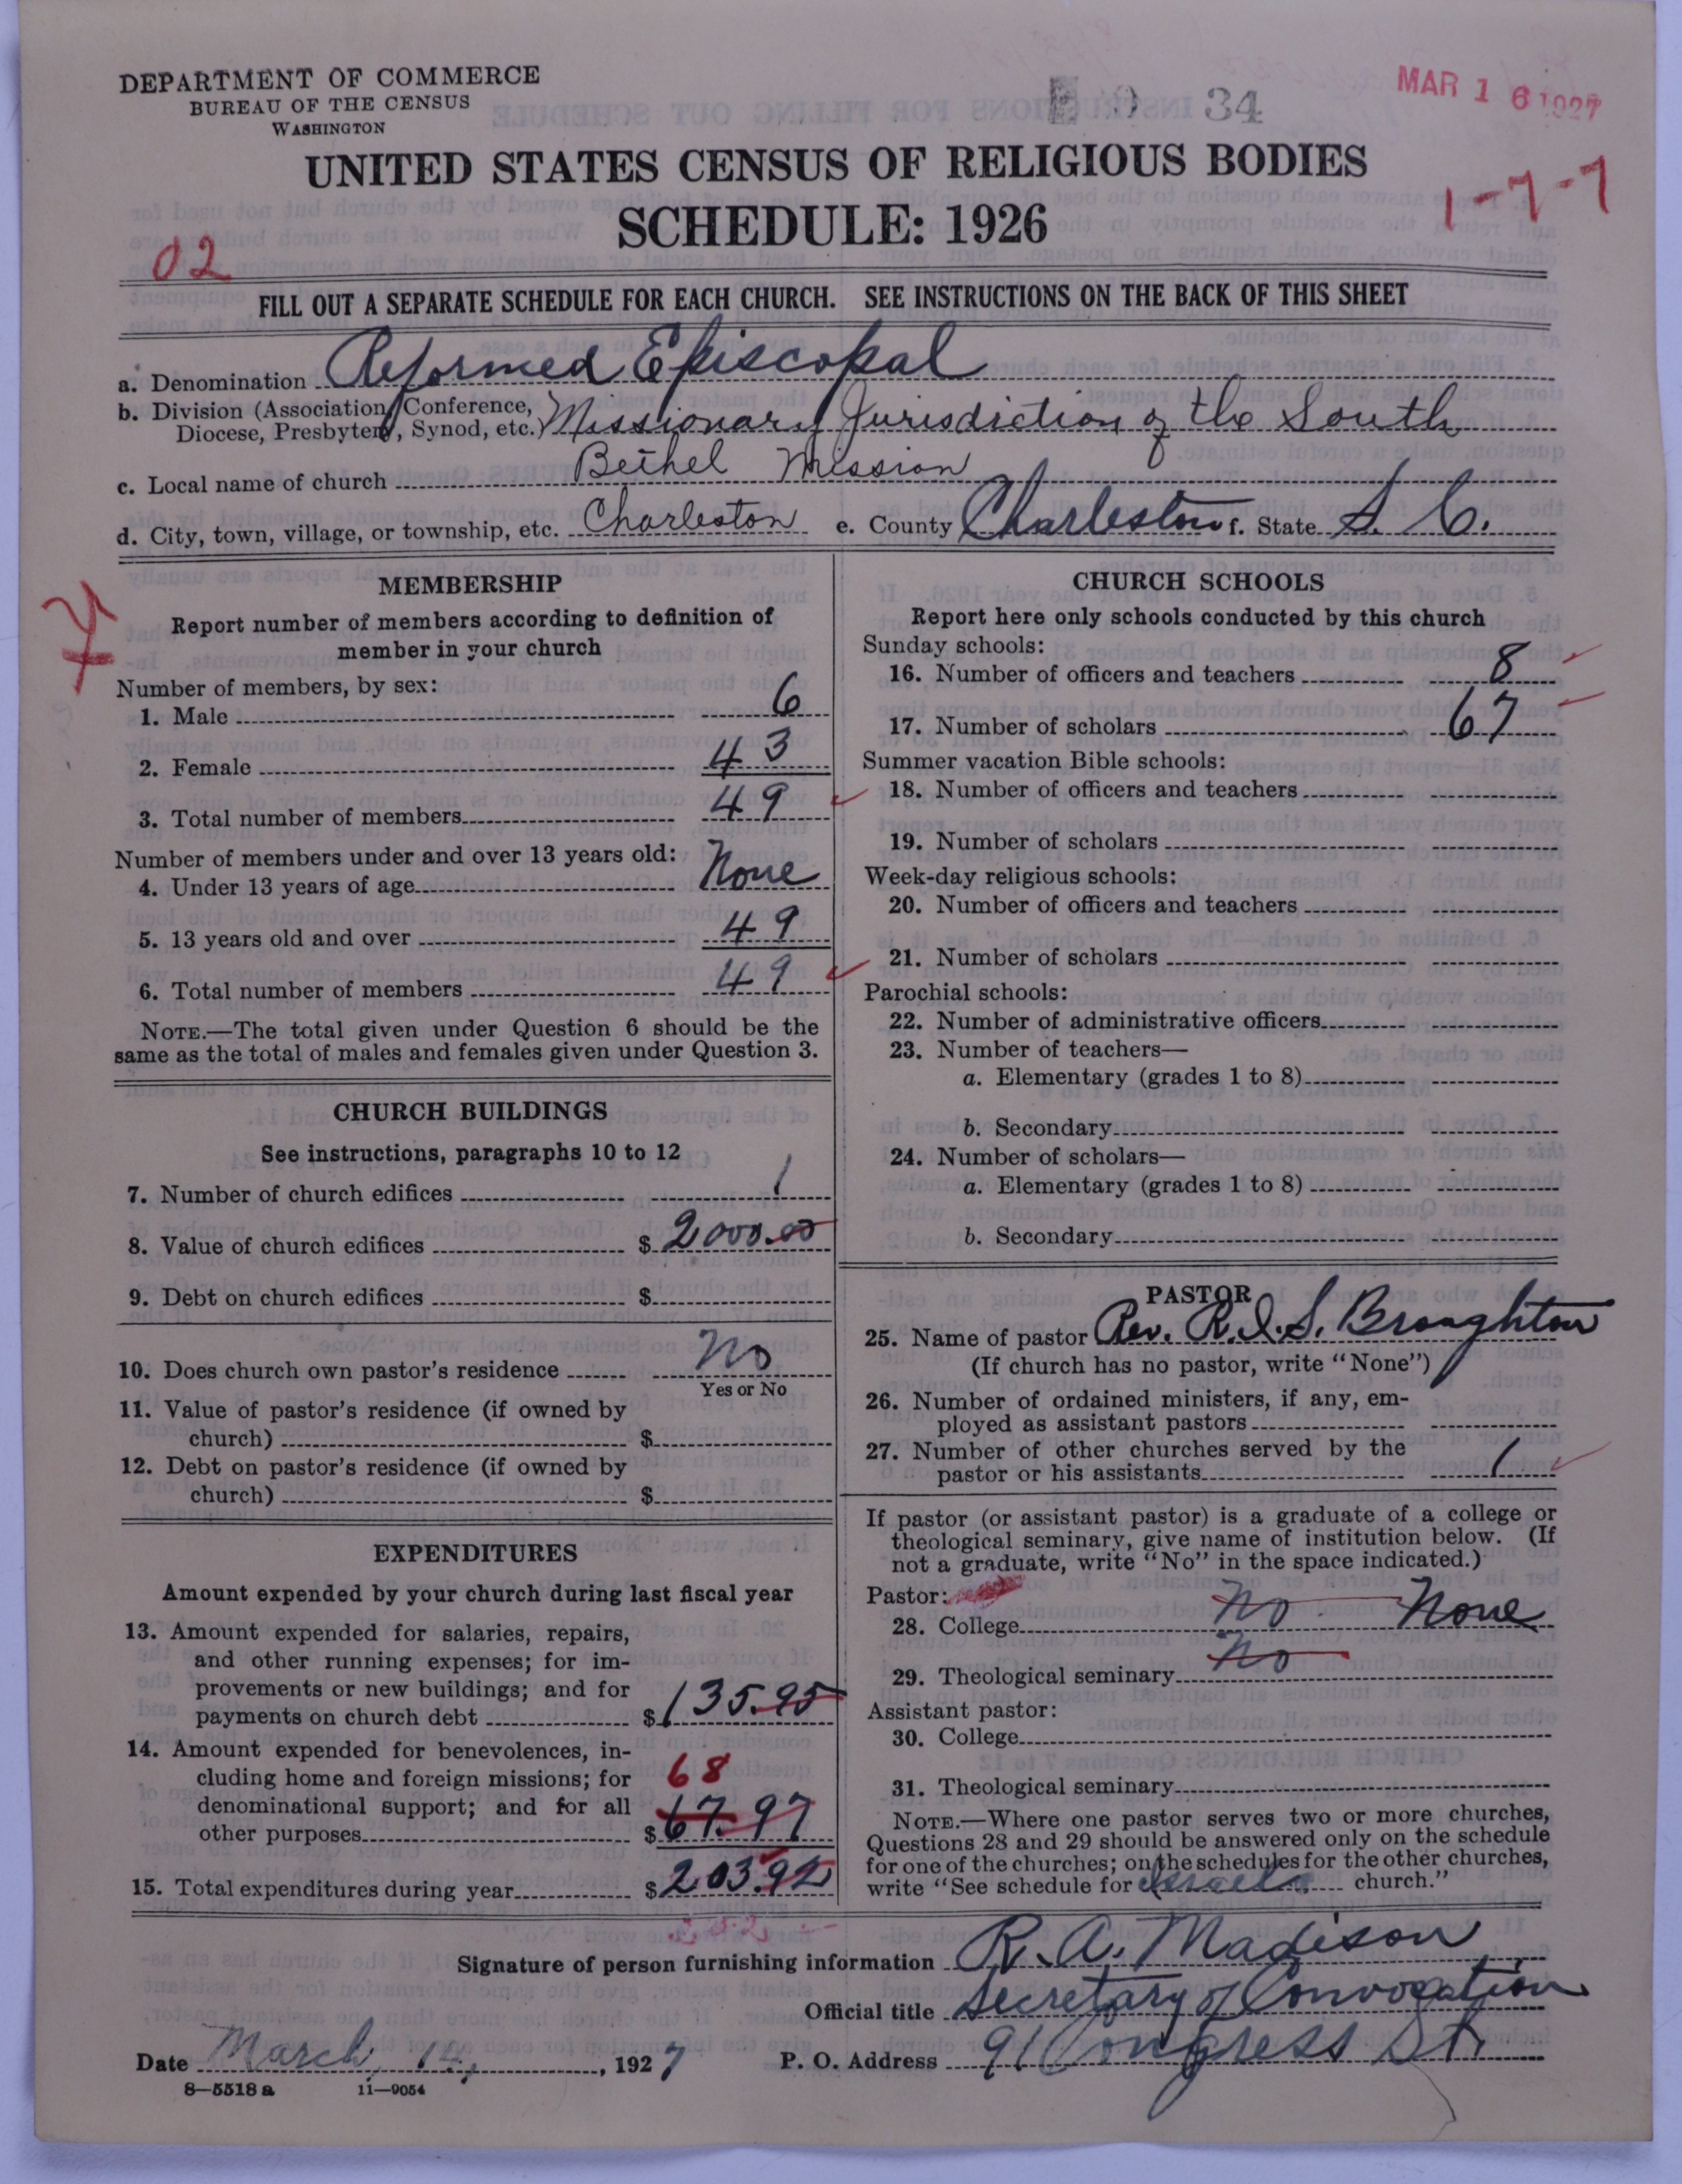 DEPARTMENT OF COMMERCE
BUREAU OF THE CENSUS
WASHINGTON
34
MAR 16 1927
UNITED STATES CENSUS OF RELIGIOUS BODIES
SCHEDULE: 1926
1-7-7
02
FILL OUT A SEPARATE SCHEDULE FOR EACH CHURCH. SEE INSTRUCTIONS ON THE BACK OF THIS SHEET
a. Denomination Reformed Episcopal
b. Division (Association, Conference, Diocese, Presbytery, Synod, etc.) Missionary Jurisdiction of the South
c. Local name of church Bethel Mission
d. City, town, village, or township, etc. Charleston e. County Charleston f. State S. C.
MEMBERSHIP
Report number of members according to definition of
member in your church
Number of members, by sex:
1. Male 6
2. Female 43
3. Total number of members 49
Number of members under and over 13 years old:
4. Under 13 years of age None
5. 13 years old and over 49
6. Total number of members 49
NOTE.—The total given under Question 6 should be the
same as the total of males and females given under Question 3.
CHURCH BUILDINGS
See instructions, paragraphs 10 to 12
7. Number of church edifices 1
8. Value of church edifices $ 2000.00
9. Debt on church edifices $
10. Does church own pastor's residence No
Yes or No
11. Value of pastor's residence (if owned by
church) $
12. Debt on pastor's residence (if owned by
church) $
EXPENDITURES
Amount expended by your church during last fiscal year
13. Amount expended for salaries, repairs,
and other running expenses; for im-
provements or new buildings; and for
payments on church debt $ 135.95
14. Amount expended for benevolences, in-
cluding home and foreign missions; for 68
denominational support; and for all
other purposes $ 67.97
15. Total expenditures during year $ 203.92
CHURCH SCHOOLS
Report here only schools conducted by this church
Sunday schools:
16. Number of officers and teachers 8
17. Number of scholars 67
Summer vacation Bible schools:
18. Number of officers and teachers
19. Number of scholars
Week-day religious schools:
20. Number of officers and teachers
21. Number of scholars
Parochial schools:
22. Number of administrative officers
23. Number of teachers—
a. Elementary (grades 1 to 8)
b. Secondary
24. Number of scholars—
a. Elementary (grades 1 to 8)
b. Secondary
PASTOR
25. Name of pastor Rev. R. I. S. Broughton
(If church has no pastor, write "None")
26. Number of ordained ministers, if any, em-
ployed as assistant pastors
27. Number of other churches served by the
pastor or his assistants 1
If pastor (or assistant pastor) is a graduate of a college or
theological seminary, give name of institution below. (If
not a graduate, write "No" in the space indicated.)
Pastor:
28. College No None
29. Theological seminary No
Assistant pastor:
30. College
31. Theological seminary
NOTE.—Where one pastor serves two or more churches,
Questions 28 and 29 should be answered only on the schedule
for one of the churches; on the schedules for the other churches,
write "See schedule for Israels church."
Signature of person furnishing information R. A. Madison
Official title Secretary of Convocation
Date March 14, 1927 P. O. Address 91 Congress St.
8—5518 a 11—9054